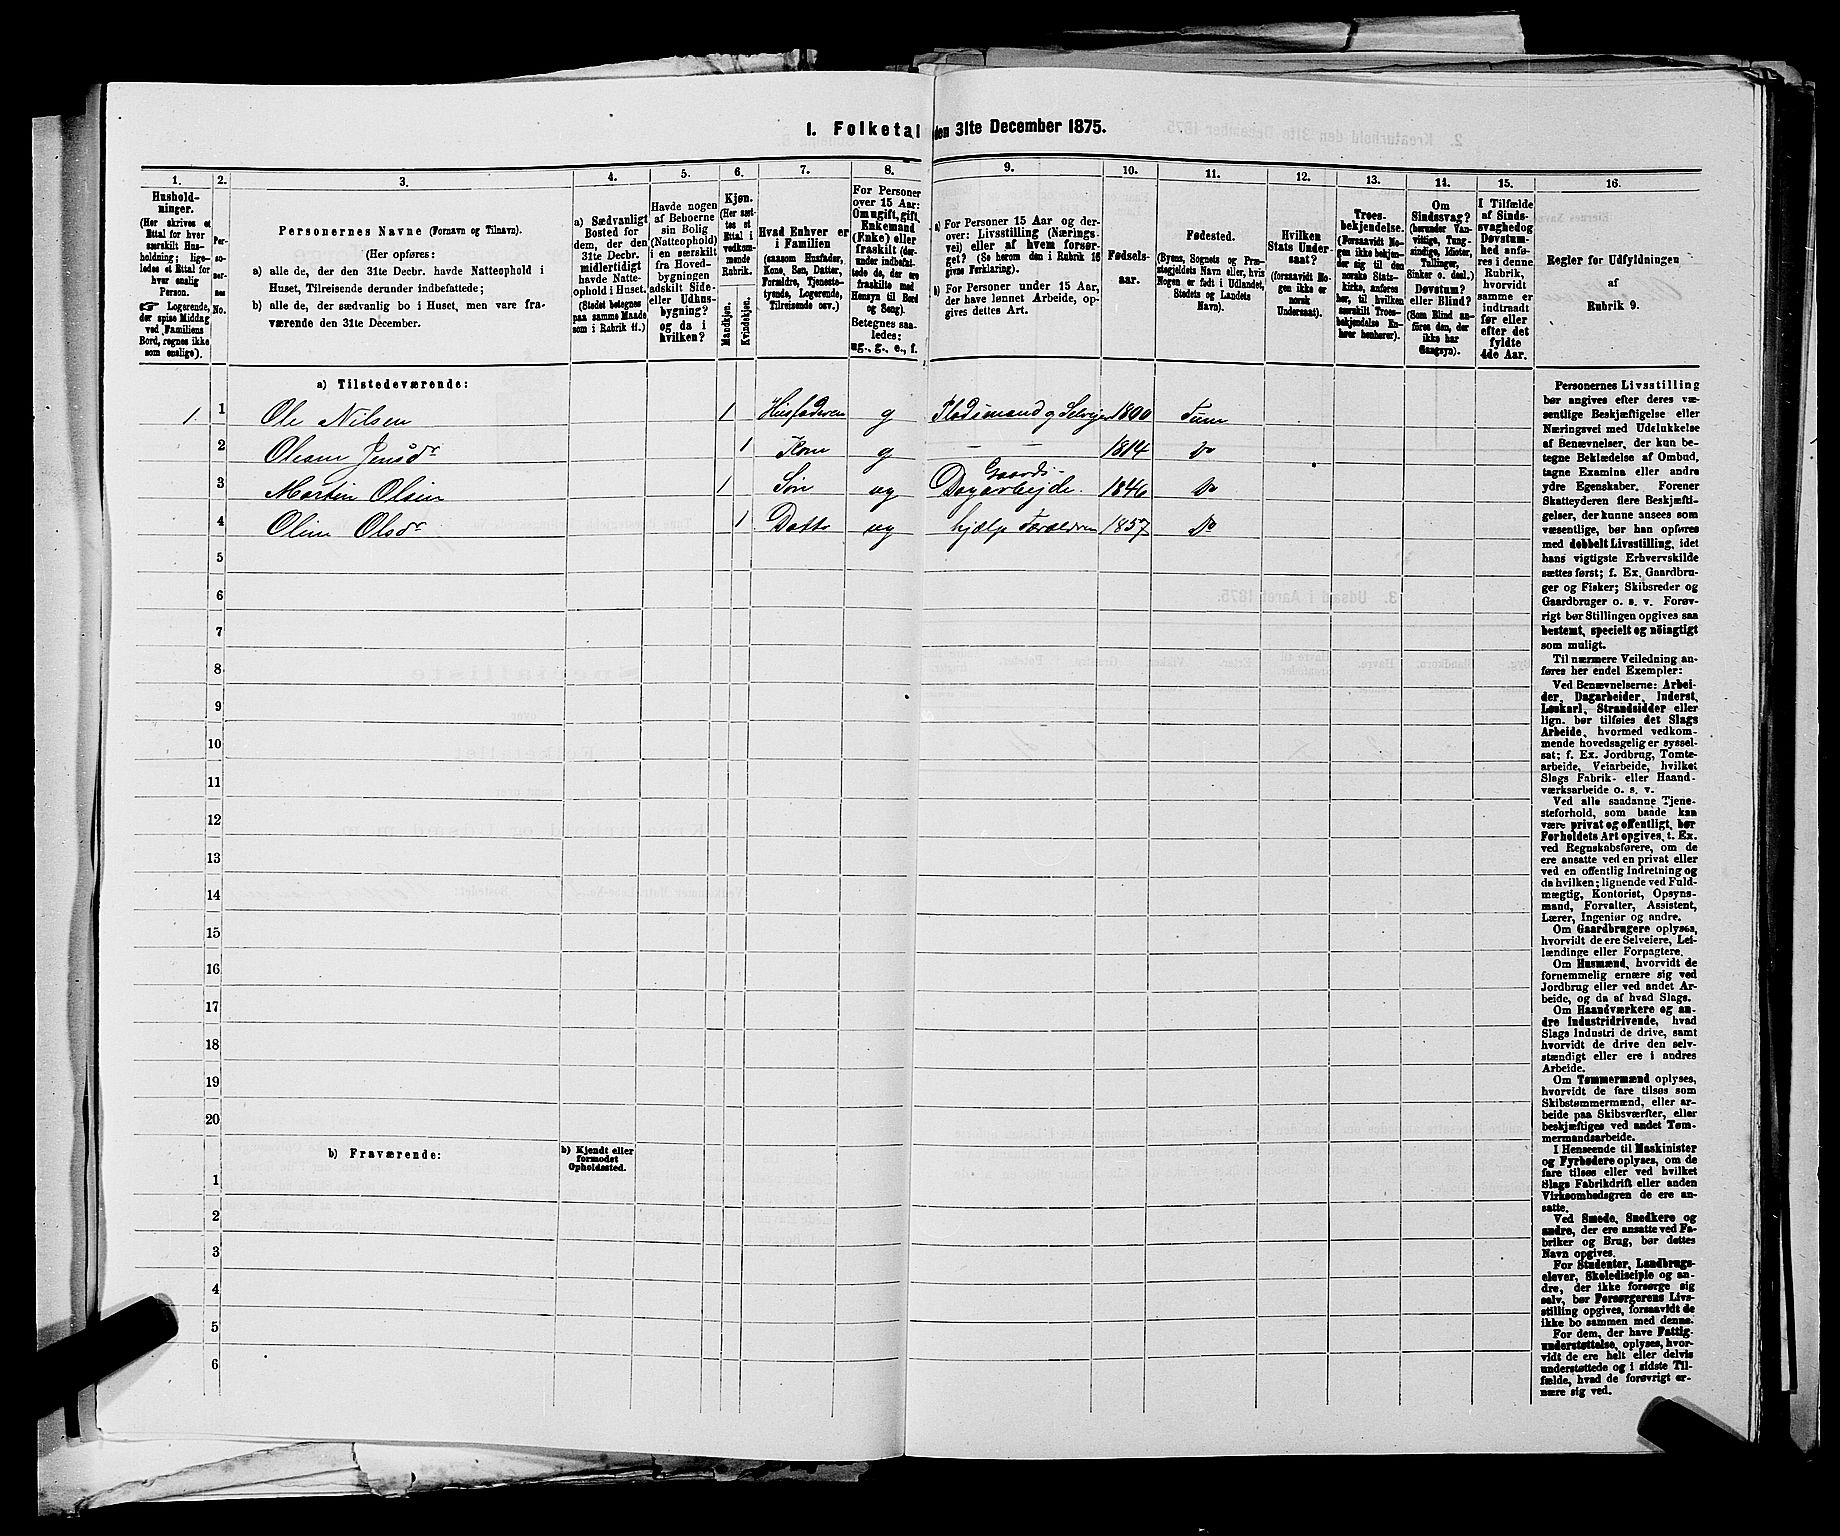 1. Folketal den 31te December 1875.
1. 2. 3. 4. 5. 6. 7. 8. 9. 10. 11. 12. 13. 14. 15. 16.
Hushold-
ninger.
(Her skrives et
Ettal for hver
særskilt Hus-
holdning; lige-
ledes et Ettal for
hver enslig
Person.
☞ Logerende,
der spise Middag
ved Familiens
Bord, regnes ikke
som enslige).
Per-
so-
ner-
nes
No.
Personernes Navne (Fornavn og Tilnavn).
(Her opføres:
a) alle de, der den 31te Decbr. havde Natteophold i
Huset, Tilreisende derunder indbefattede;
b) alle de, der sædvanlig bo i Huset, men vare fra-
værende den 31te December.
a) Sædvanligt
Bosted for
dem, der den
31te Decbr.
midlertidigt
havde Natte-
ophold i Huset.
(Stedet betegnes
paa samme Maade
som i Rubrik 11.)
Havde nogen
af Beboerne
sin Bolig
(Natteophold)
i en særskilt
fra Hoved-
bygningen
adskilt Side-
eller Udhus-
bygning?
og da i
hvilken?
Kjøn.
(Her sæt-
tes et
Ettal i
vedkom-
mende
Rubrik.
Mandkjøn.
Kvindekjøn.
Hvad Enhver er
i Familien
(saasom Husfader,
Kone, Søn, Datter,
Forældre, Tjeneste-
tyende, Logerende,
Tilreisende osv.)
For Personer
over 15 Aar:
Om ugift, gift,
Enkemand
(Enke) eller
fraskilt (der-
under indbefat-
tede de, der ere
fraskilte med
Hensyn til Bord
og Seng).
Betegnes saa-
ledes:
ug., g., e., f.
a) For Personer 15 Aar og der-
over: Livsstilling (Nærings-
vei) eller af hvem forsør-
get? (Se herom den i Rubrik 16
givne Forklaring).
b) For Personer under 15 Aar,
der have lønnet Arbeide, op-
gives dettes Art.
Fødsels-
aar.
Fødested.
(Byens, Sognets og Præ-
stegjeldets Navn eller, hvis
Nogen er født i Udlandet,
Stedets og Landets
Navn).
Hvilken
Stats Under-
saat?
(forsaavidt No-
gen ikke er
norsk
Undersaat).
Troes-
bekjendelse.
(Forsaavidt No-
gen ikke bekjen-
der sig til den
norske Stats-
kirke, anføres
her, til hvilken
særskilt Troes-
bekjendelse En-
hver henhører).
Om
Sindssvag?
(herunder Van-
vittige, Tung-
sindige, Idioter,
Tullinger,
Sinker o. desl.)
Døvstum?
eller Blind?
(Som Blind an-
føres den, der
ikke har
Gangsyn).
I Tilfælde
af Sinds-
svaghed og
Døvstum-
hed anfø-
res i denne
Rubrik,
hvorvidt
samme er
indtraadt
før eller
efter det
fyldte
4de Aar.
Regler for Udfyldningen
af
Rubrik 9.
a) Tilstedeværende:
1 1 Ole Nilsen 1 Husfaderen g Pladsmand g Selveier 1800 Tune
2 Jensdr 1 Kone g — — 1814 do
Gaards-
3 Martin Olsen 1 Søn ug Dagarbejde. 1846 do
4 Oline Olsdr 1 Datter ug hjælp Foreldrene 1857 do
5
6
7
8
9
10
11
12
13
14
15
16
17
18
19
20
b) Fraværende:
b) Kjendt eller
formodet
Opholdssted.
1
2
3
4
5
6
Personernes Livsstilling
bør angives efter deres væ-
sentlige Beskjæftigelse eller
Næringsvei med Udelukkelse
af Benævnelser, der kun be-
tegne Beklædelse af Ombud,
tagne Examina eller andre
ydre Egenskaber. Forener
Skatteyderen flere Beskjæfti-
gelser, der kunne ansees som
væsentlige, bør han opføres
med dobbelt Livsstilling, idet
hans vigtigste Erhvervskilde
sættes først; f. Ex. Gaardbru-
ger og Fisker; Skibsreder og
Gaardbruger o. s. v. Forøv-
rigt bør Stillingen opgives saa
bestemt, specielt og nöiagtigt
som muligt.
Til nærmere Veiledning an-
føres her endel Exempler:
Ved Benævnelserne: Arbei-
der, Dagarbeider, Inderst,
Løskarl, Strandsidder eller
lign. bør tilføies det Slags
Arbeide, hvormed vedkom-
mende hovedsagelig er syssel-
sat; f. Ex. Jordbrug, Tomte-
arbeide, Veiarbeide, hvilket
Slags Fabrik- eller Haand-
værksarbeide o. s. v.
Ved alle saadanne Tjene-
steforhold, som baade kan
være privat og offentligt, bør
Forholdets Art opgives, t. Ex.
ved Regnskabsførere, om de
ere ansatte ved en privat eller
ved en offentlig Indretning og
da hvilken; lignende ved Fuld-
mægtig, Kontorist, Opsyns-
mand, Forvalter, Assistent,
Lærer, Ingeniør og andre.
Om Gaardbrugere oplyses,
hvorvidt de ere Selveiere, Lei-
lændinge eller Forpagtere.
Om Husmænd, hvorvidt de
fornemmelig ernære sig ved
Jordbrug eller ved andet Ar-
beide, og da af hvad Slags.
Om Haandværkere og an-
dre Industridrivende, hvad
Slags Industri de drive, samt
hvorvidt de drive den selv-
stændigt eller ere i andres
Arbeide.
Om Tømmermænd oplyses,
hvorvidt de fare tilsøs som
Skibstømmermænd, eller ar-
beide paa Skibsværfter, eller
beskjæftiges ved andet Tøm-
mermandsarbeide.
I Henseende til Maskinister
og Fyrbødere oplyses, om de
fare tilsøs eller ved hvilket
Slags Fabrikdrift eller anden
Virksomhedsgren de ere an-
satte.
Ved Smede, Snedkere og
andre, der ere ansatte ved Fa-
briker og Brug, bør dettes
Navn opgives.
For Studenter, Landbrugs-
elever, Skoledisciple og an-
dre, der ikke forsørge sig
selv, bør Forsørgerens Livs-
stilling opgives, forsaavidt de
ikke bo sammen med denne.
For dem, der have Fattig-
understøttelse, oplyses, hvor-
vidt de ere helt eller delvis
understøttede og i sidste Til-
fælde, hvad de forøvrigt er-
nære sig ved.